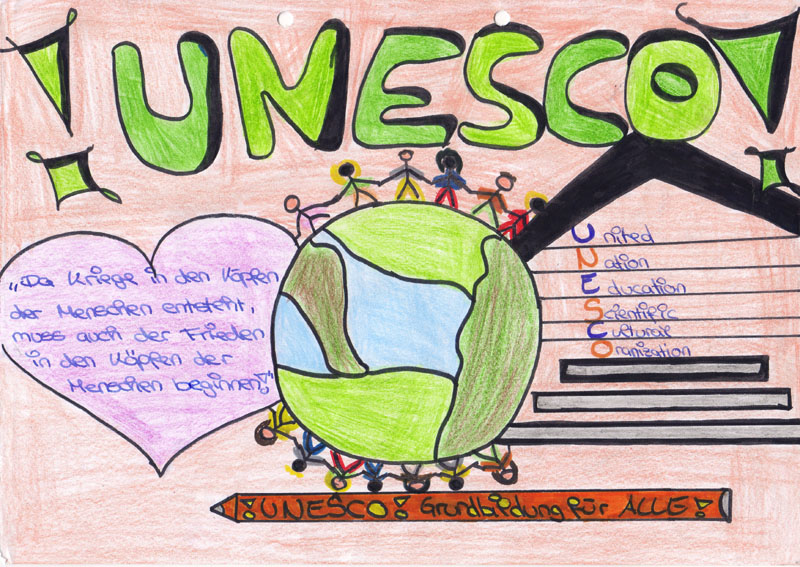 UNESCO
„Da Kriege in den Köpfen
der Menschen entsteht,
muss auch der Frieden
in den Köpfen der
Menschen beginnen!“
United
Nation
Education
Scientific
Cultural
Organization
!UNESCO! Grundbildung für ALLE!